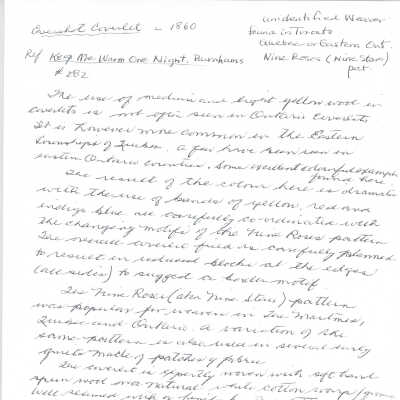 Overshot Coverlet - 1860
unidentified Weaver
found in Toronto
Quebec or Eastern Ont.
Nine Roses (Nine Stars)
pat.
Ref Keep Me Warm One Night, Burnhams
# 282
The use of medium and light yellow wool in
coverlets is not often seen in Ontario Coverlets.
It is however more common in the Eastern
Townships of Quebec. A few have been seen in
eastern Ontario counties. Some excellent colourful examples
found here.
The result of the colour here is dramatic
with the use of bands of yellow, red and
indigo blue all carefully co-ordinated with
the changing motifs of the Nine Roses pattern
The overall coverlet field is carefully planned
to result in reduced blocks at the edges
(all sides) to suggest a border motif
The Nine Roses (aka Nine Stars) pattern
was popular for weavers in The Maritimes,
Quebec and Ontario. A variation of the
same pattern is also used in several early
quilts made of patches of fabric
The coverlet is expertly woven with soft hand
spun wool on a natural white cotton warp/ground
Well seamed with a hand